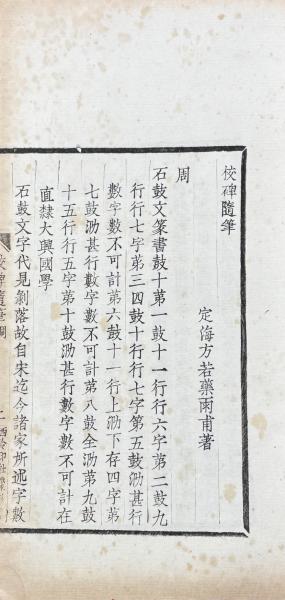 校碑隨筆
定海方若藥雨甫著
周
石鼓文篆書鼓十第一鼓十一行行六字第二鼓九
行行七字第三四鼓十行行七字第五鼓泐甚行
數字數不可計第六鼓十一行上泐下存四字第
七鼓泐甚行數字數不可計第八鼓全泐第九鼓
十五行行五字第十鼓泐甚行數字數不可計在
直隸大興國學
石鼓文字代見剝落故自宋迄今諸家所述字數
校碑隨筆
一 西泠印社